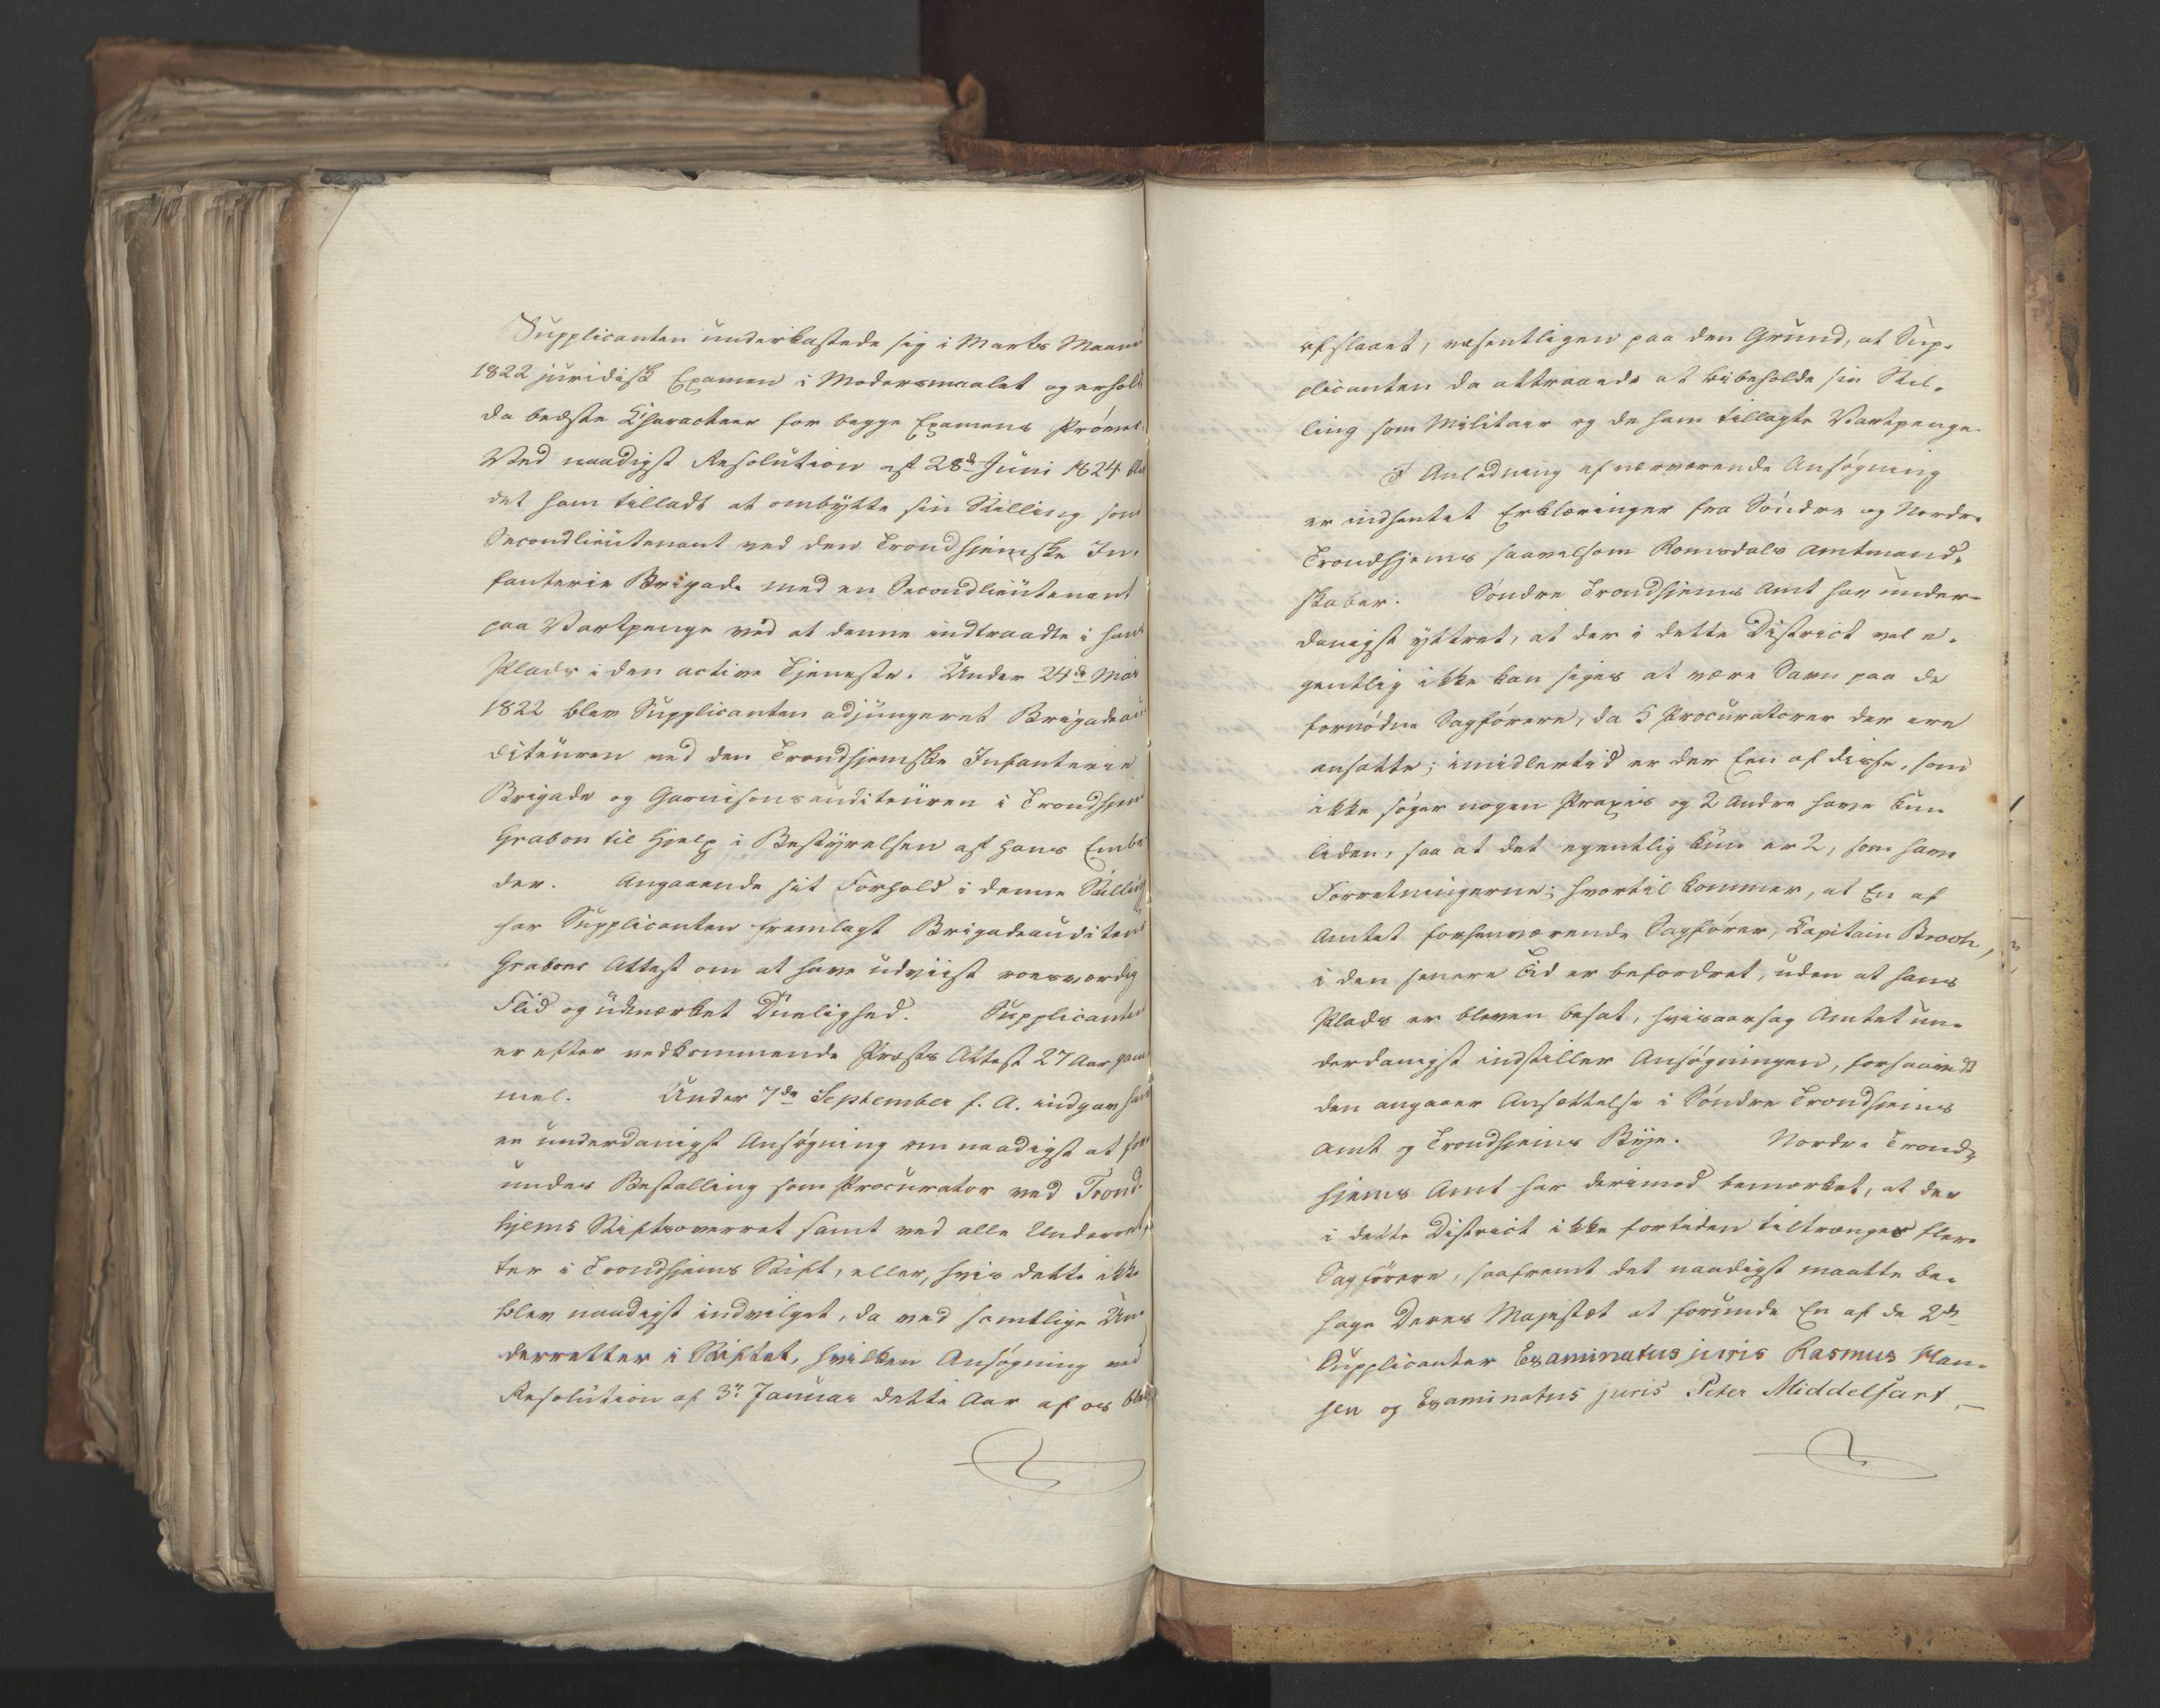 Supplicanten underkastede sig i Marts Maaned
1822 juridisk Examen i Modersmaalet og erholdt
da bedste Characteer for begge Examens Prøver.
Ved naadigst Resolution af 28de Juni 1824 blev
det ham tilladt at ombytte sin Stilling som
Secondlieutenant ved den Trondhjemske In-
fanterie Brigade med en Secondlieutenant
paa Vartpenge ved at denne indtraadte i hans
Plads i den active Tjeneste. Under 24de Mai
1822 blev Supplicanten adjungeret Brigadeau-
diteuren ved den Trondhjemske Infanterie
Brigade og Garnisonsauditeuren i Trondhjem
Grabow til Hjelp i Bestyrelsen af hans Embe-
der. Angaaende sit Forhold i denne Stilling
har Supplicanten fremlagt Brigadeauditeur
Grabows Attest om at have udviist roesværdig
Flid og udmærket Duelighed. Supplicanten
er efter vedkommende Præsts Attest 27 Aar gam-
mel. Under 7de September f. A. indgav han
en underdanigst Ansøgning om naadigst at for-
undes Bestalling som Procurator ved Trond-
hjems Stiftsoverret samt ved alle Underret-
ter i Trondhjems Stift, eller, hvis dette ikke
blev naadigst indvilget, da ved samtlige Un-
derretter i Stiftet, hvilken Ansøgning ved
Resolution af 3die Januar dette Aar af os blev
afslaaet, væsentligen paa den Grund, at Sup-
plicanten da attraaede at bibeholde sin Stil-
ling som Militair og de ham tillagte Vartpenge.
I Anledning af nærværende Ansøgning
er indhentet Erklæringer fra Søndre og Nordre
Trondhjems saavelsom Romsdals Amtmand-
skaber. Søndre Trondhjems Amt har under-
danigst yttret, at der i dette District vel e-
gentlig ikke kan siges at være Savn paa de
fornødne Sagførere, da 5 Procuratorer der ere
ansatte; imidlertid er der Een af disse, som
ikke søger nogen Praxis og 2 Andre have kun
liden, saa at det egentlig kun er 2, som have
Forretningerne; hvortil kommer, at En af
Amtet forhenværende Sagfører, Capitain Broch,
i den senere Tid er befordret, uden at hans
Plads er bleven besat, hvisaarsag Amtet un-
derdanigst indstiller Ansøgningen, forsaavidt
den angaaer Ansættelse i Søndre Trondhjems
Amt og Trondhjems Bye. Nordre Trond-
hjems Amt har derimod bemærket, at der
i dette District ikke fortiden tiltrænges flere
Sagførere, saafremt det naadigst maatte be-
hage Deres Majestæt at forunde En af de 2de
Supplicanter Examinatus juris Rasmus Han-
sen og Examinatus juris Peter Middelfart,